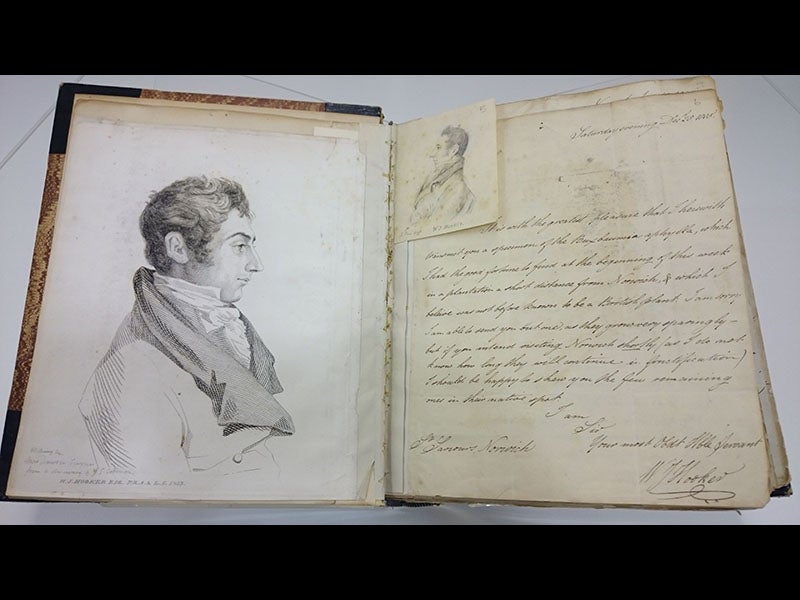 Etching by
Mrs Dawson Turner
from a drawing by J. S. Cotman
W. J. HOOKER ESQ. F.R.A. & L.S. 1813.
5
W J HOOKER
6
Saturday evening
It is with the greatest pleasure that I herewith
transmit you a specimen of the Buxbaumia aphylla, which
I had the good fortune to find at the beginning of this week
in a plantation a short distance from Norwich, & which I
believe was not before known to be a British plant. I am sorry
I am able to send you but one, as they grow very sparingly –
but if you intend visiting Norwich shortly (as I do not
know how long they will continue in fructification)
I should be happy to shew you the few remaining
ones in their native spot.
I am
Sir
Your most Obdt Hble Servant
St Saviours Norwich
W J Hooker